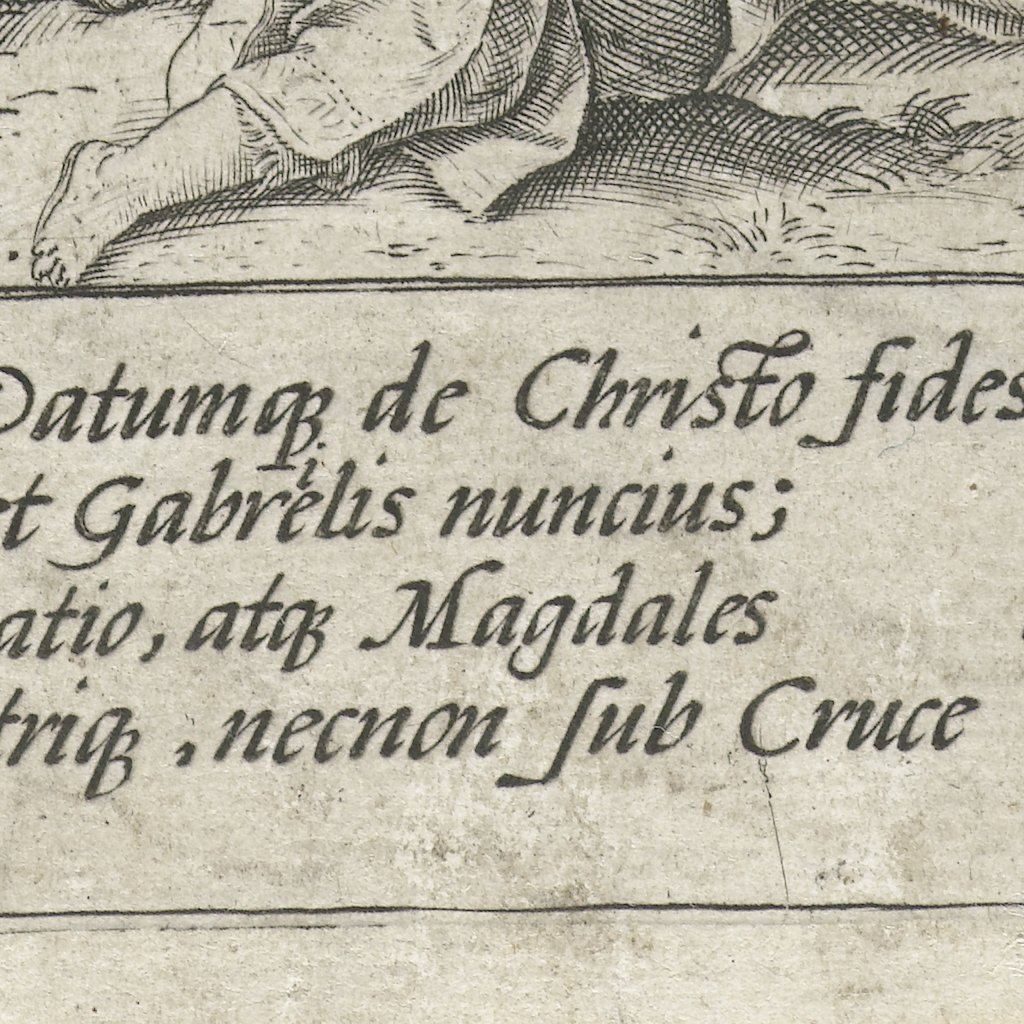 Datumq de Christo fides
et Gabriëlis nuncius;
atio, atq Magdales
triq, necnon sub Cruce